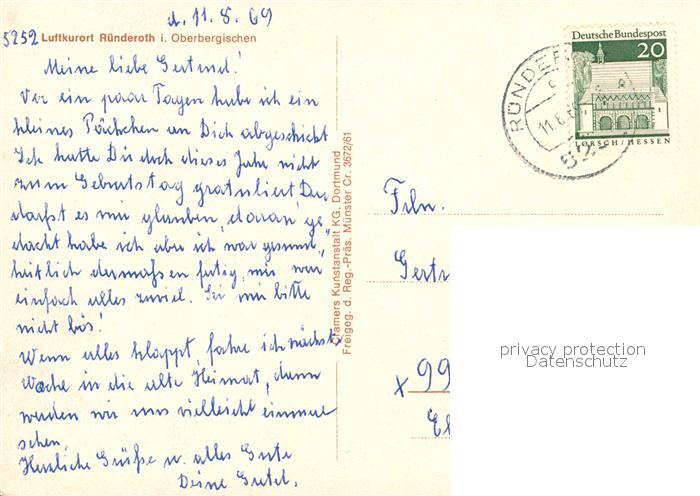 d. 11.8.69
5252 Luftkurort Ründeroth i. Oberbergischen
Meine liebe Gertrud!
Vor ein paar Tagen habe ich ein
kleines Päckchen an Dich abgeschickt
Ich hatte Dir doch dieses Jahr nicht
zum Geburtstag gratuliert. Du
darfst es mir glauben, daran ge
dacht habe ich aber ich war gesund„
heitlich dermaßen fertig, mir war
einfach alles zuviel. Sei mir bitte
nicht bös!
Wenn alles klappt, fahre ich nächste
Woche in die alte Heimat, dann
werden wir uns vielleicht einmal
sehen.
Herzliche Grüße u. alles Gute
Deine Gretel.
Cramers Kunstanstalt KG, Dortmund
Freigeg. d. Reg.-Präs. Münster Cr. 3672/61
Deutsche Bundespost
20
LORSCH/HESSEN
11.8.
Frln.
x 99
privacy protection
Datenschutz